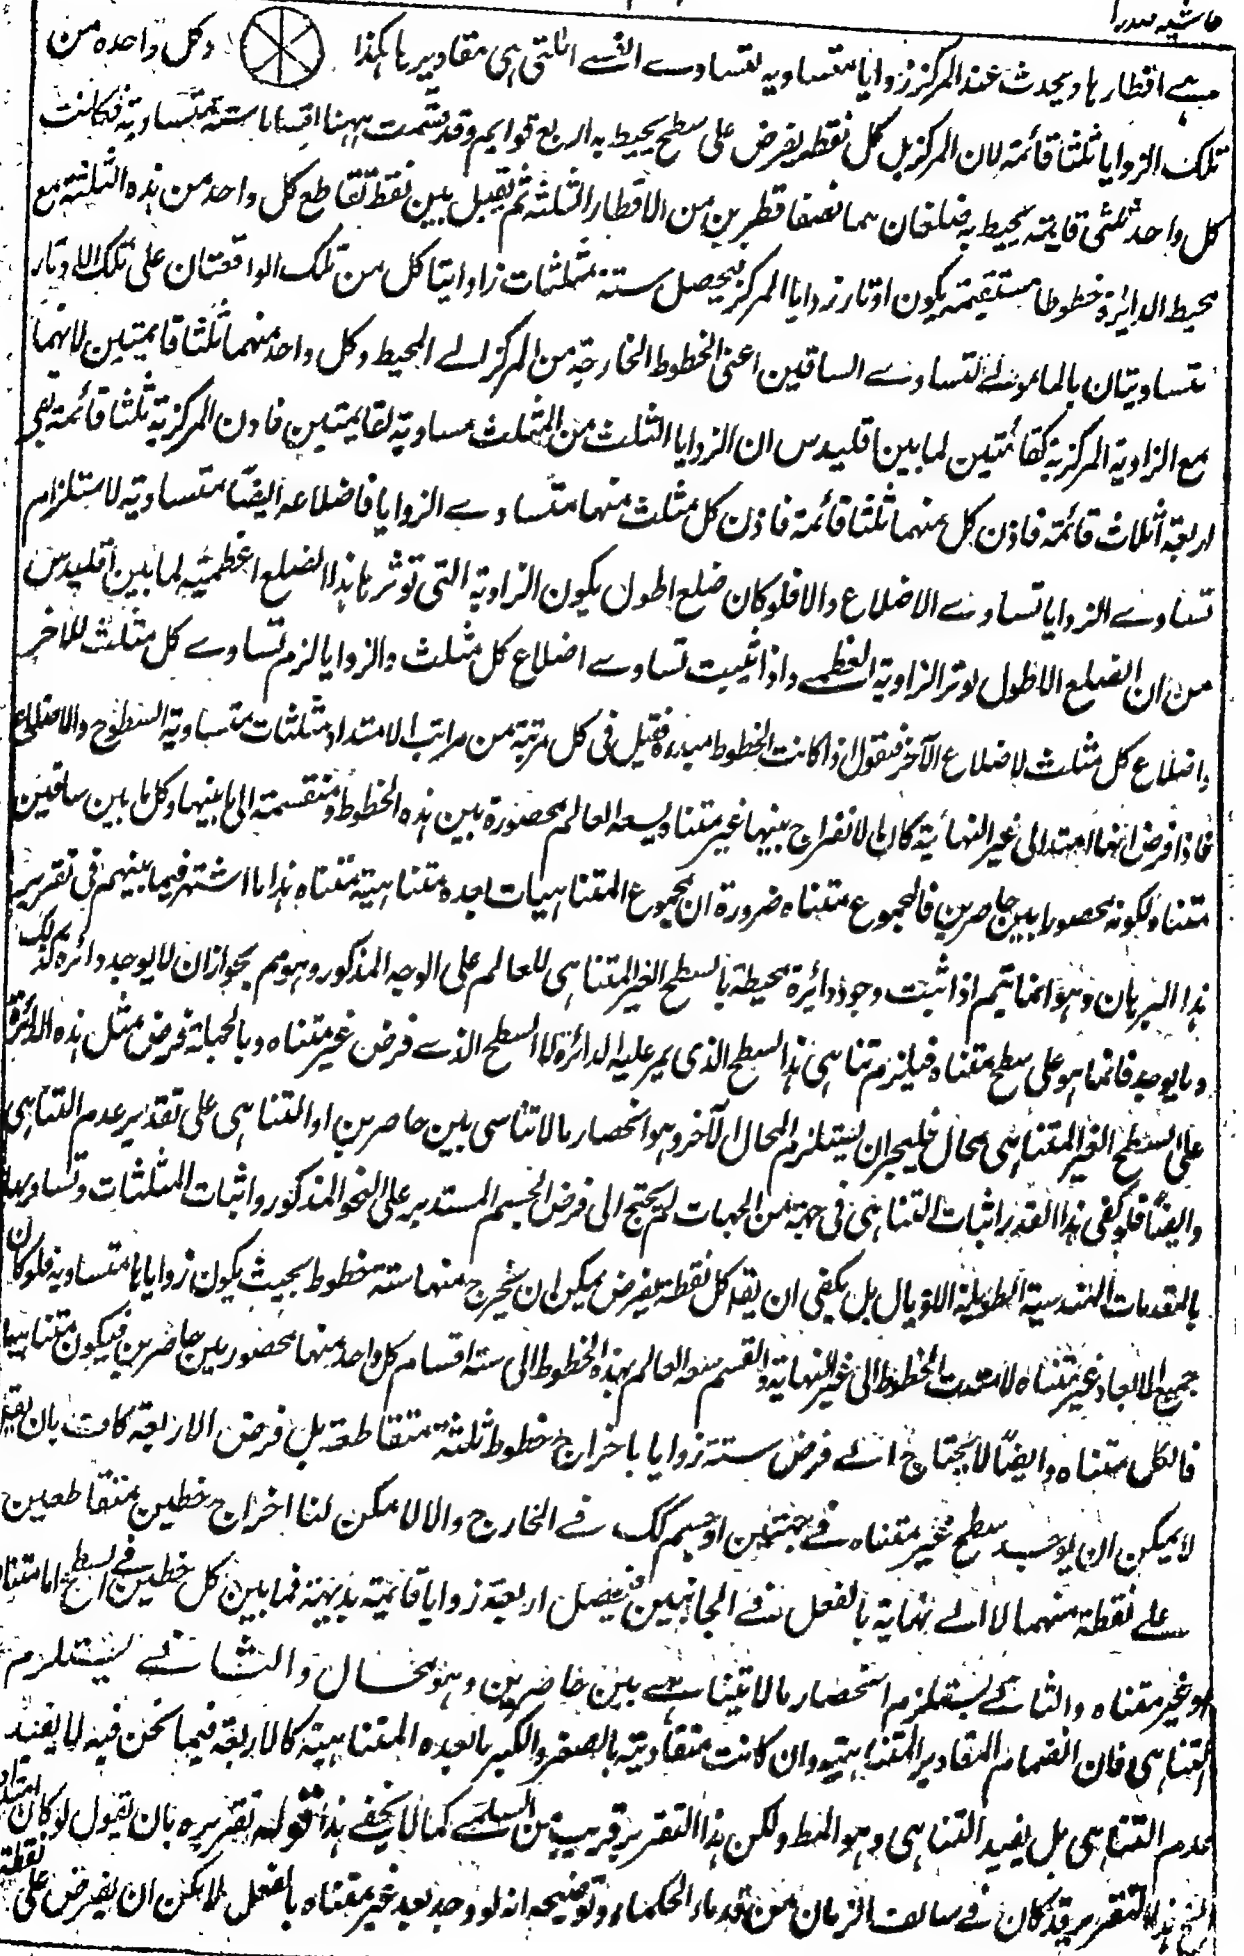 حاشیه صدرا
هے اقطارها ويحدث عند المركز زوايا متساوية لتساوے القسے التى هى مقاديرها هكذا وكل واحدة من
تلك الزوايا ثلثا قائمة لان المركز بل كل نقطة يفرض على سطح يحيط به اربع قوايم وقد قسمت ههنا اقساما ستة متساوية فكانت
كل واحد ثلثى قايمة يحيط به ضلعان هما نصفا قطرين من الاقطار الثلثة ثم نقبل بين نقط تقاطع كل واحد من هذه الثلثة مع
محيط الدايرة خطوطا مستقيمة يكون اوتار زوايا المركز فيحصل ستة مثلثات زاوايتا كل من تلك الواقعتان على تلك الاوتار
متساويتان بالمامونے لتساوے الساقين اعنى الخطوط الخارجة من المركز الے المحيط وكل واحد منهما ثلثا قايمتين لانهما
مع الزاوية المركزية كقائمتين لما بين اقليدس ان الزوايا الثلث من المثلث مساوية لقايمتين فاذن المركزية ثلثا قائمة بقى
اربعة اثلاث قائمة فاذن كل منهما ثلثا قائمة فاذن كل مثلث منها متساوے الزوايا فاضلاعه ايضا متساوية لاستلزام
تساوے الزوايا تساوے الاضلاع والا فلو كان ضلع اطول يكون الزاوية التى توترها هذا الضلع اعظمية لما بين اقليدس
من ان الضلع الاطول يوتر الزاوية العظمے واذا ثبت تساوے اضلاع كل مثلث والزوايا لزم تساوے كل مثلث للآخر
واضلاع كل مثلث لاضلاع الآخر فنقول اذا كانت الخطوط ممتدة فقيل فى كل مرتبة من مراتب الامتداد مثلثات متساوية السطوح والاضلاع
فاذا فرض انها امتد الى غير النهاية كان الانفراج بينها غير متناه يسعه العالم محصورة بين هذه الخطوط ومنقسمة الى ما بينها وكل ما بين ساقين
متناه لكونه محصورا بين حاصرين فالمجموع متناه ضرورة ان مجموع المتناهيات بعدة متناهية متناه هذا ما اشتهر فيما بينهم فى تقرير
هذا البرهان وهو انما يتم اذا ثبت وجود دائرة محيطة بالسطح الغير المتناهى للعالم على الوجه المذكور وهو مم بجواز ان لا يوجد دائرة كذلك
وما يوجد فانما هو على سطح متناه فيلزم تناهى هذا السطح الذى يمر عليه الدائرة لا السطح الذے فرض غير متناه وبالجملة فرض مثل هذه الدائرة
على السطح الغير المتناهى محال فليجز ان يستلزم المحال الآخر وهو انحصار ما لا تناهى بين حاصرين او المتناهى على تقدير عدم التناهى
وايضا فلو كفى هذا القدر اثبات التناهى فى جهة من الجهات لم يحتج الى فرض الجسم المستدير على النحو المذكور واثبات المثلثات وتساويها
بالمقدمات الهندسية الطويلة الاذيال بل يكفى ان يقال كل نقطة يفرض يمكن ان يخرج منها ستة خطوط بحيث يكون زواياها متساوية فلو كان
جميع الابعاد غير متناه لامتدت الخطوط الى غير النهاية والقسم سعة العالم بهذه الخطوط الى ستة اقسام كل واحد منها محصور بين حاصرين فيكون متناهيا
فالكل متناه وايضا لا يحتاج الے فرض ستة زوايا باخراج خطوط ثلثة متقاطعة بل فرض الاربعة كافت بان يقال
لا يمكن ان يوجد سطح غير متناه فے جهتين او جسم كك فے الخارج والا لامكن لنا اخراج خطين متقاطعين
علے نقطة منهما لا الے نهاية بالفعل فے الجانبين فيحصل اربعة زوايا قايمة بديهة فما بين كل خطين فے السطح اما متناه
او غير متناه والثانے يستلزم انحصار ما لا يتناهے بين حاضرين وهو محال والثانے يستلزم
التناهى فان انضمام المقادير المتناهية وان كانت متفاوتة بالصغر والكبر بالعدة المتناهية كالاربعة فيما نحن فيه لا يفيد
عدم التناهى بل يفيد التناهى وهو المط ولكن هذا التقرير قريب من السلمے كما لا يخفے هذا قوله تقريره بان نقول لو كان امتداد
الخ هذا التقرير قد كان فے سالف الزمان من قدماء الحكماء وتوضيحه انه لو وجد بعد غير متناه بالفعل لامكن ان يفرض على نقطة